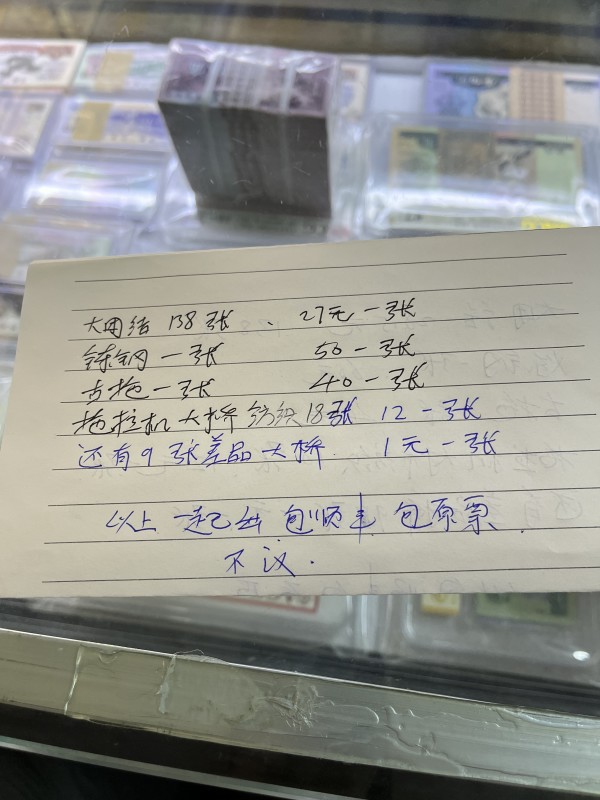 大团结 138张、27元一张
炼钢一张 50一张
古拖一张 40一张
拖拉机大桥纺织18张 12一张
还有9张差品大桥. 1元一张
以上一起出包顺丰包原票.
不议.